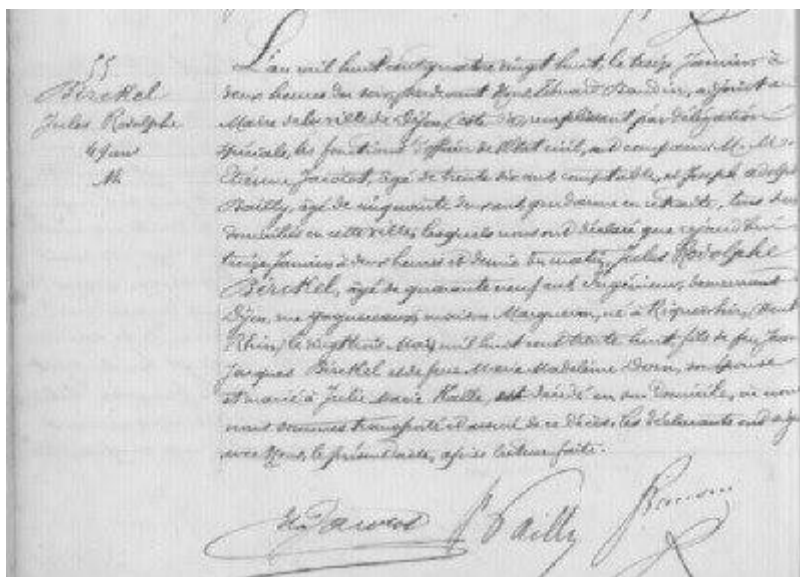 55
Birckel
Jules Rodolphe
49 ans
M.
L'an mil huit cent quatre vingt huit, le treize Janvier à
deux heures du soir, par devant Nous Edouard adjoint au
Maire de la ville de Dijon (Côte d'or) remplissant par délégation
spéciale, les fonctions d'officier de l'Etat civil, ont comparu M. M.
Etienne Jacotot, âgé de trente six ans comptable, et Joseph Adolphe
Bailly, âgé de cinquante deux ans gendarme en retraite, tous deux
domiciliés en cette ville, lesquels nous ont déclaré que cejourd'hui
treize Janvier, à deux heures et demie du matin, Jules Rodolphe
Birckel, âgé de quarante neuf ans Ingénieur, demeurant
Dijon, rue maison Margueron, né à Riquewihr, (Haut
Rhin) le vingt trois Mars mil huit cent trente huit, fils de feu Jean
Jacques Birckel et de feue Marie Madeleine son épouse
et marié à Julie Marie est décédé en son domicile, où nous
nous sommes transporté et assuré de ce décès. Les déclarants ont signé
avec Nous, le présent acte, après lecture faite.
Jacotot Bailly